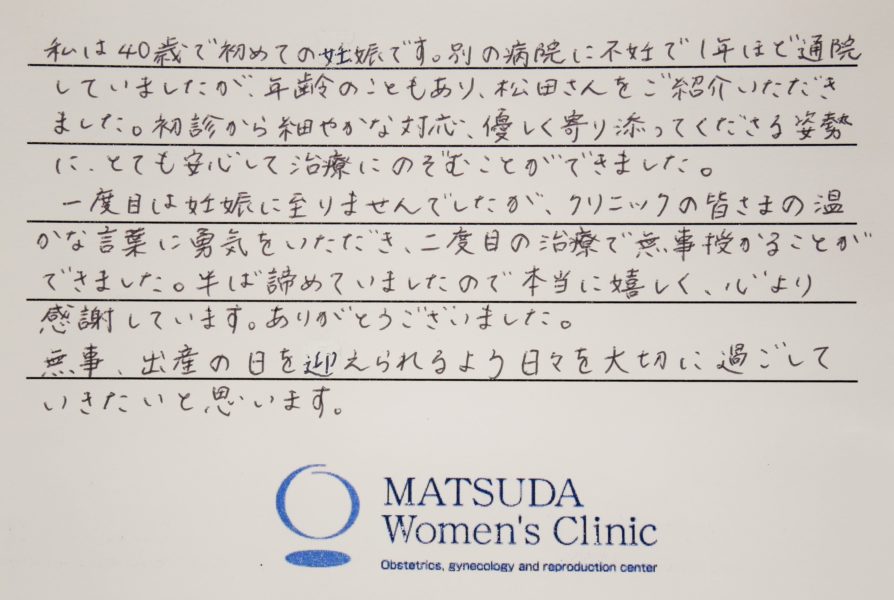 私は40歳で初めての妊娠です。別の病院に不妊で1年ほど通院
していましたが、年齢のこともあり、松田さんをご紹介いただき
ました。初診から細やかな対応、優しく寄り添ってくださる姿勢
に、とても安心して治療にのぞむことができました。
一度目は妊娠に至りませんでしたが、クリニックの皆さまの温
かな言葉に勇気をいただき、二度目の治療で無事授かることが
できました。半ば諦めていましたので本当に嬉しく、心より
感謝しています。ありがとうございました。
無事、出産の日を迎えられるよう日々を大切に過ごして
いきたいと思います。
MATSUDA
Women's Clinic
Obstetrics, gynecology and reproduction center